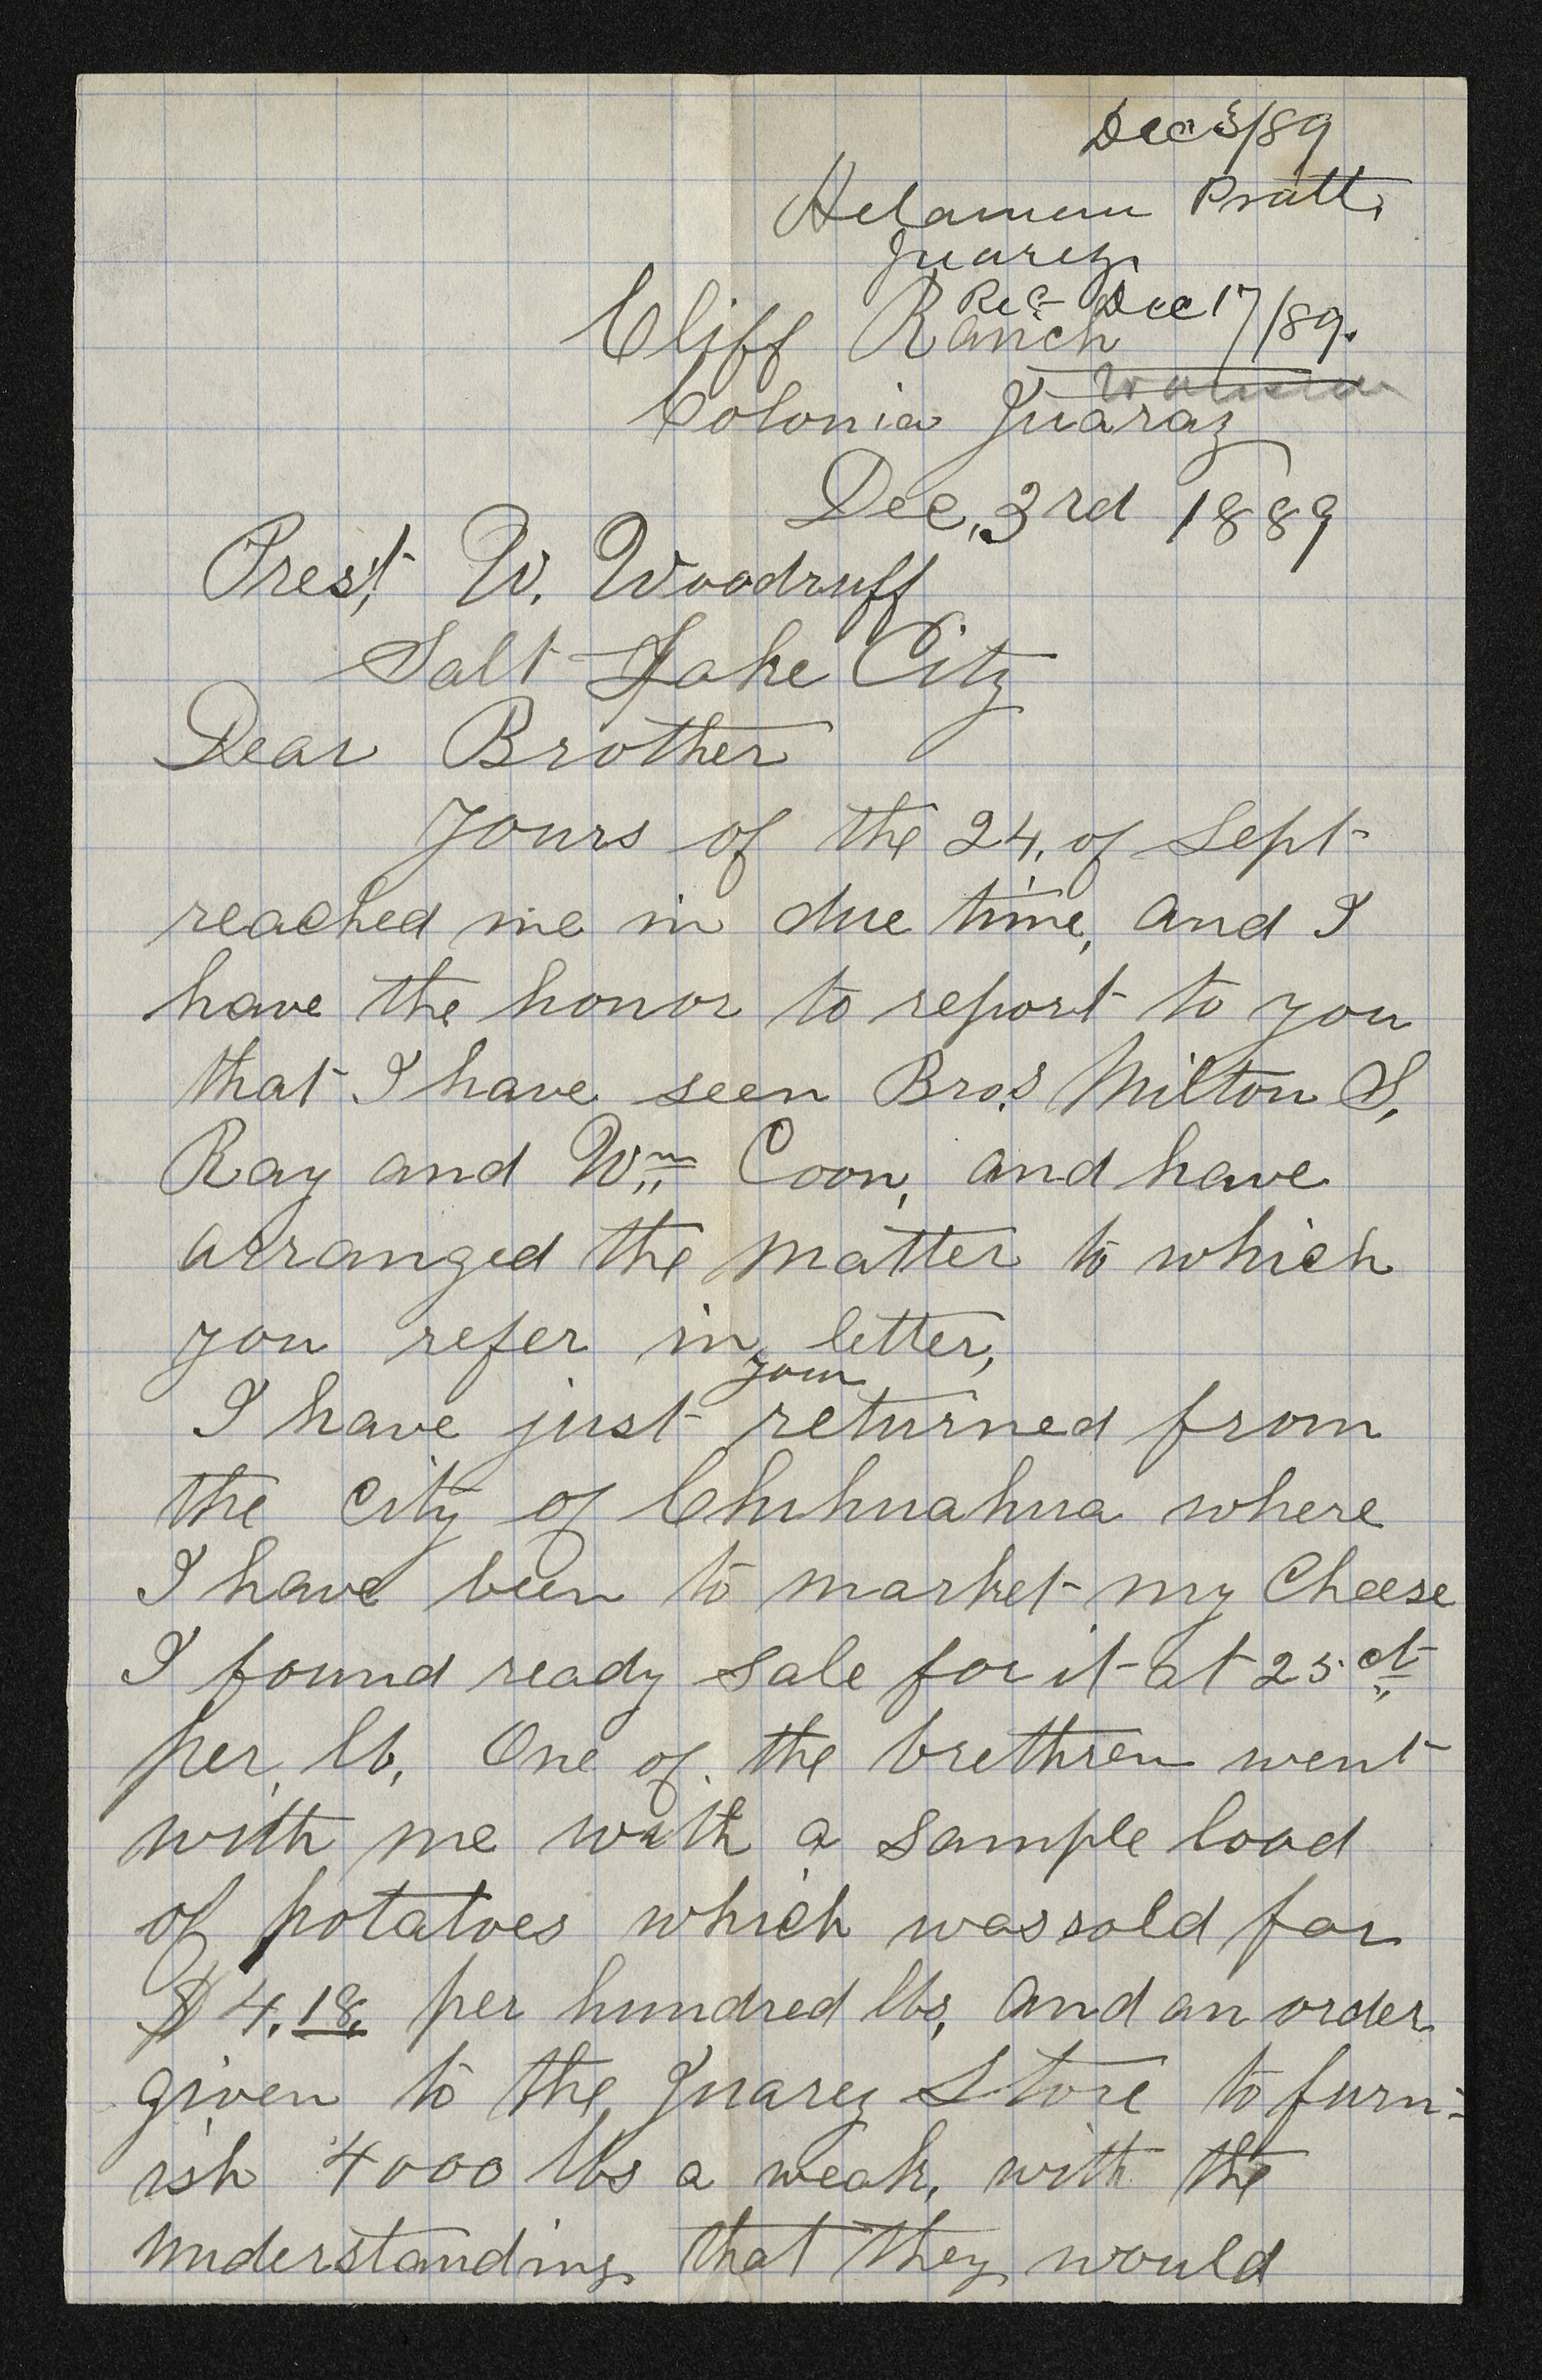 Dec 3/89
Helaman Pratt.
Juarez.
Rec- Dec 17/89.
Cliff Ranch
Colonia Juaraz
Dec. 3rd 1889
Pres't W. Woodruff
Salt Lake City
Dear Brother
Yours of the 24. of Sept
reached me in due time, and I
have the honor to report to you
that I have seen Bro's Milton S.
Ray and Wm Coon, and have
arranged the matter to which
you refer in your letter,
I have just returned from
the City of Chihuahua where
I have been to market my Cheese
I found ready sale for it at 25 ct
per, lb, One of the brethren went
with me with a sample load
of potatoes which was sold for
$4.18. per hundred lbs, and an order
given to the Juarez Store to furn-
ish 4000 lbs a weak, with the
understanding that they would